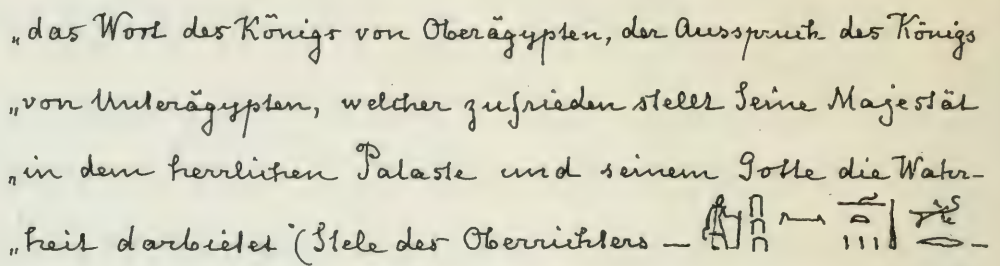 „das Wort des Königs von Oberägypten, der Ausspruch des Königs
„von Unterägypten, welcher zufrieden stellt Seine Majestät
„in dem herrlichen Palaste und seinem Gotte die Wahr-
„heit darbietet (Stele des Oberrichters — —